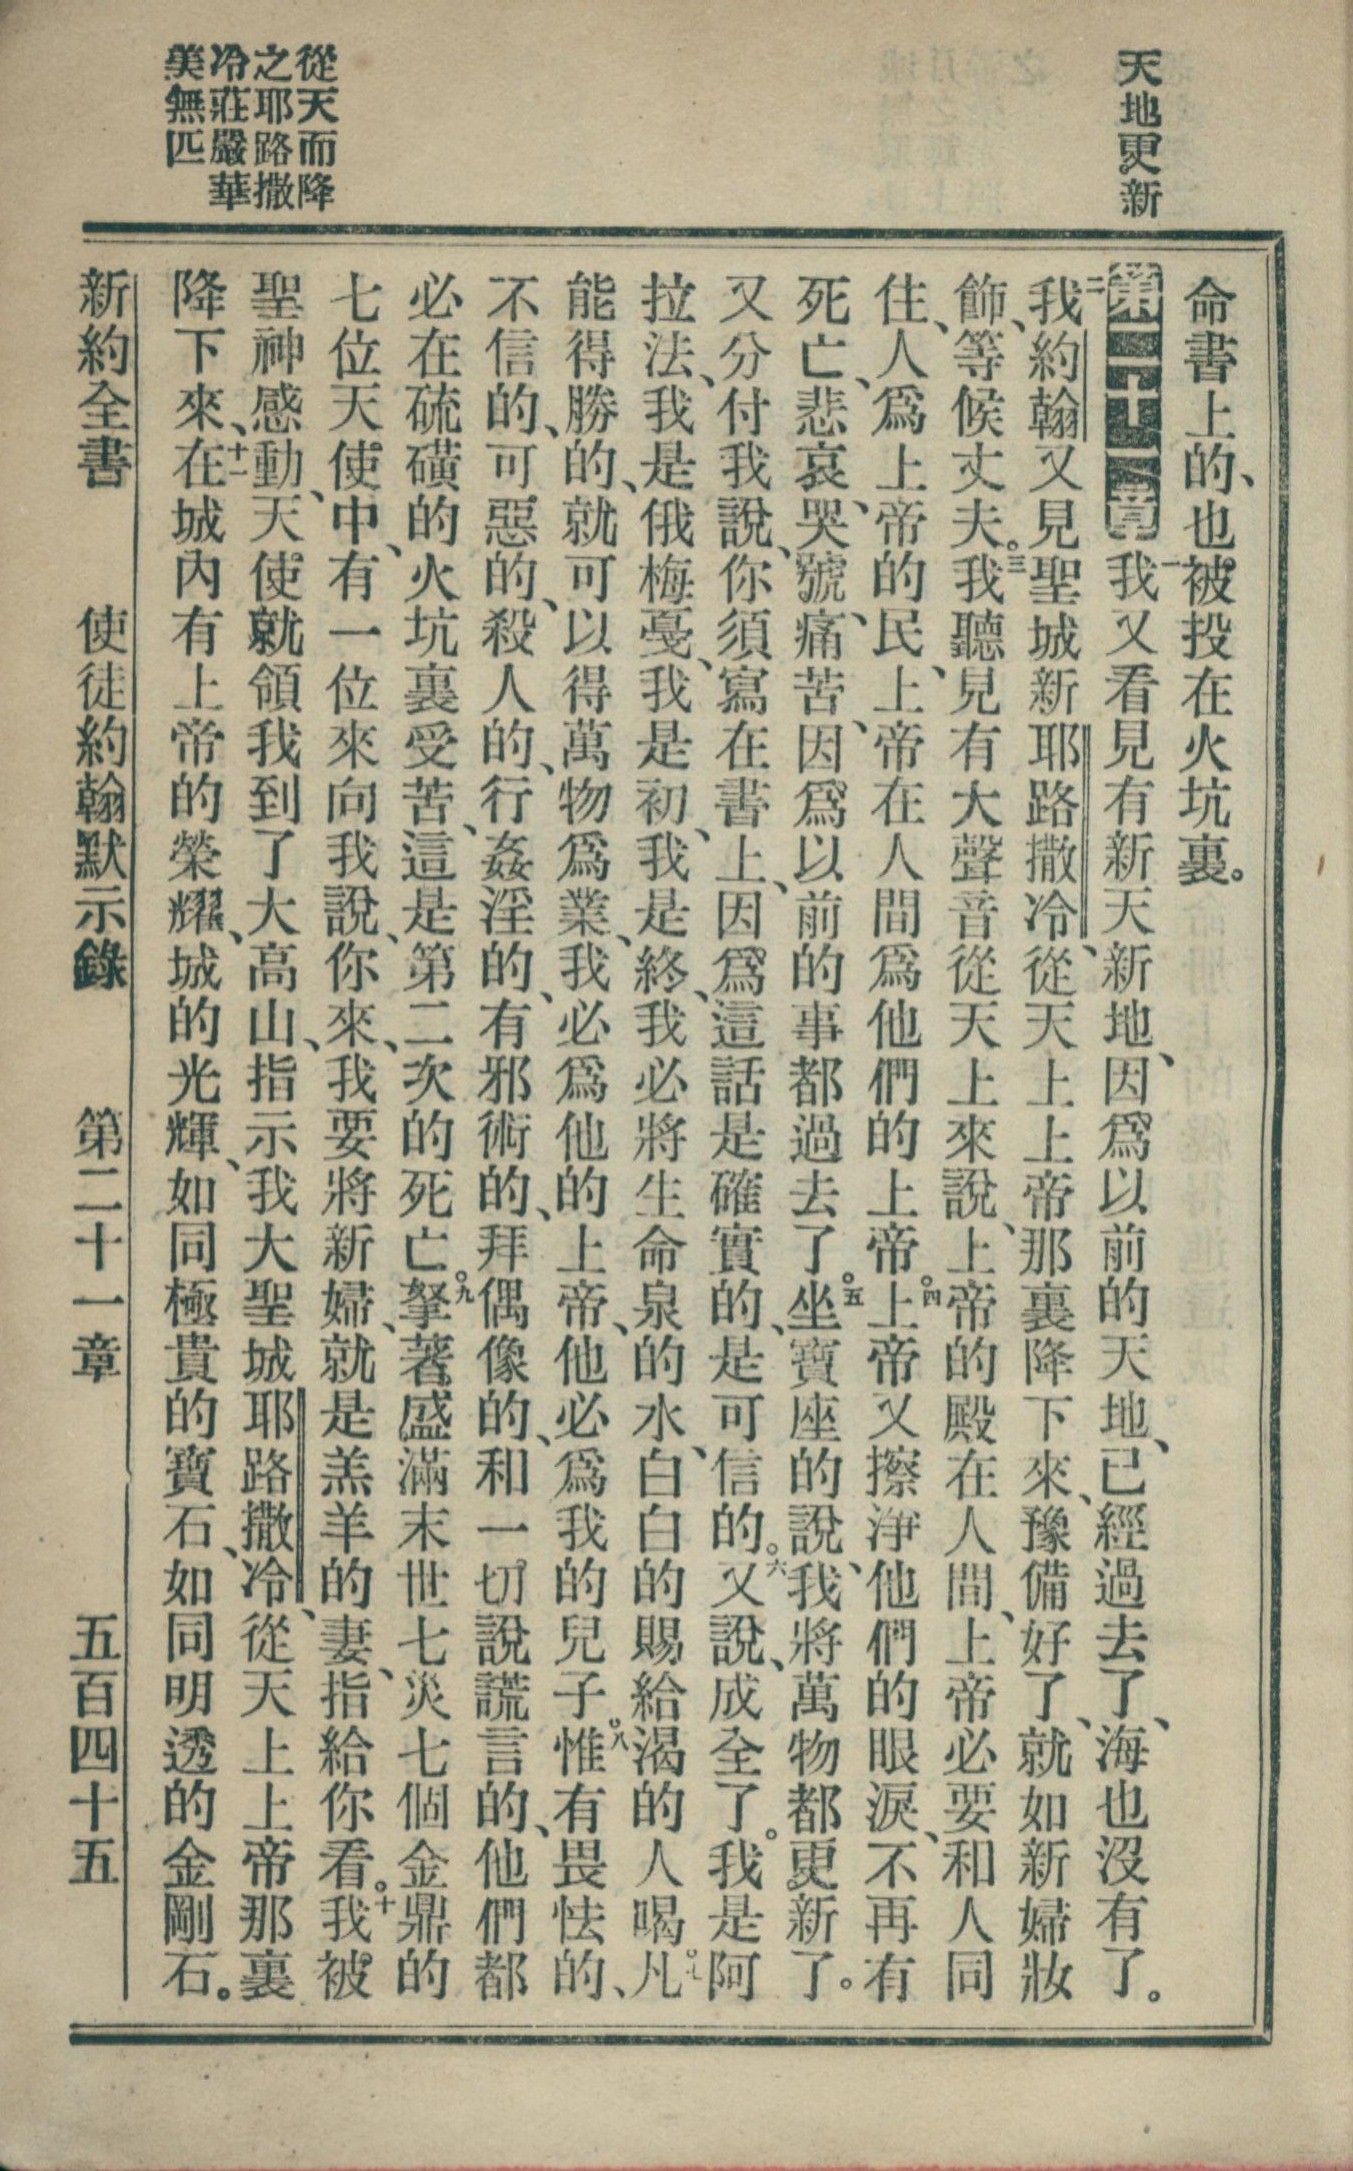 天地更新
從天而降
之耶路撒
冷莊嚴華
美無匹
命書上的、也被投在火坑裏。
第二十一章一我又看見有新天新地、因爲以前的天地、已經過去了、海也沒有了。
二我約翰又見聖城新耶路撒冷、從天上上帝那裏降下來、豫備好了、就如新婦妝
飾、等候丈夫。三我聽見有大聲音從天上來說、上帝的殿在人間、上帝必要和人同
住、人爲上帝的民、上帝在人間爲他們的上帝。四上帝又擦淨他們的眼淚、不再有
死亡、悲哀、哭號、痛苦、因爲以前的事都過去了。五坐寶座的說、我將萬物都更新了。
又分付我說、你須寫在書上、因爲這話是確實的、是可信的。六又說、成全了。我是阿
拉法、我是俄梅戞、我是初、我是終、我必將生命泉的水、白白的賜給渴的人喝。七凡
能得勝的、就可以得萬物爲業、我必爲他的上帝、他必爲我的兒子。八惟有畏怯的、
不信的、可惡的、殺人的、行姦淫的、有邪術的、拜偶像的、和一切說謊言的、他們都
必在硫磺的火坑裏受苦、這是第二次的死亡。九拏著盛滿末世七災七個金鼎的
七位天使中、有一位來向我說、你來、我要將新婦、就是羔羊的妻、指給你看。十我被
聖神感動、天使就領我到了大高山、指示我大聖城耶路撒冷、從天上上帝那裏
降下來、十一在城內有上帝的榮耀、城的光輝、如同極貴的寶石、如同明透的金剛石。
新約全書 使徒約翰默示錄 第二十一章 五百四十五